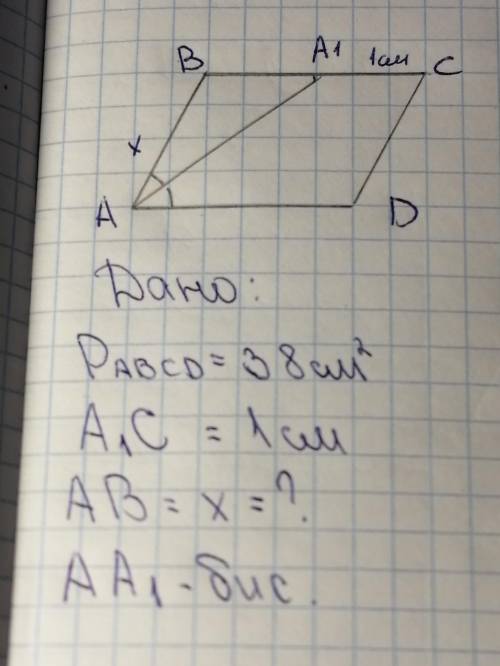 B A1 1см C
x
A D
Дано:
PABCD = 38 см²
A₁C = 1 см
AB = x = ?
AA₁ - бис.